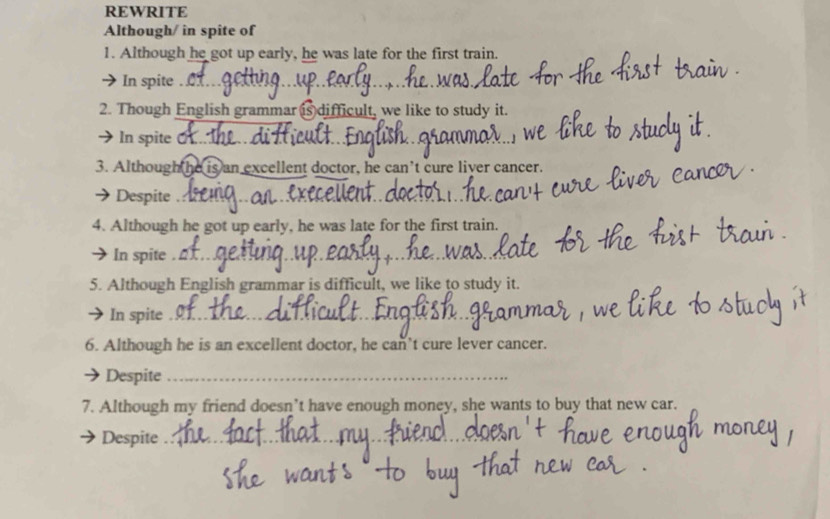 REWRITE
Although/ in spite of
1. Although he got up early, he was late for the first train.
→ In spite of getting up early, he was late for the first train.
2. Though English grammar is difficult, we like to study it.
→ In spite of the difficult English grammar, we like to study it.
3. Although he is an excellent doctor, he can't cure liver cancer.
→ Despite being an execellent doctor, he can't cure liver cancer.
4. Although he got up early, he was late for the first train.
→ In spite of getting up early, he was late for the first train.
5. Although English grammar is difficult, we like to study it.
→ In spite of the difficult English grammar, we like to study it
6. Although he is an excellent doctor, he can't cure lever cancer.
→ Despite ...............................................................
7. Although my friend doesn't have enough money, she wants to buy that new car.
→ Despite the fact that my friend doesn't have enough money,
she wants to buy that new car.